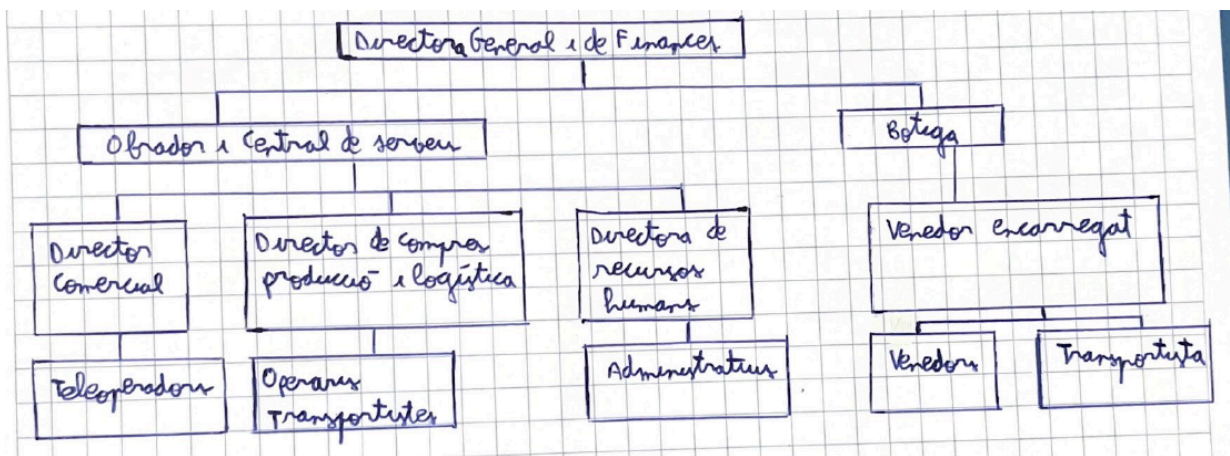 Directora General i de Finances
Obrador i Central de serveis
Botiga
Director
Comercial
Director de compres
producció i logística
Directora de
recursos
humans
Venedor encarregat
Teleoperadors
Operaris
Transportistes
Administratius
Venedors
Transportista